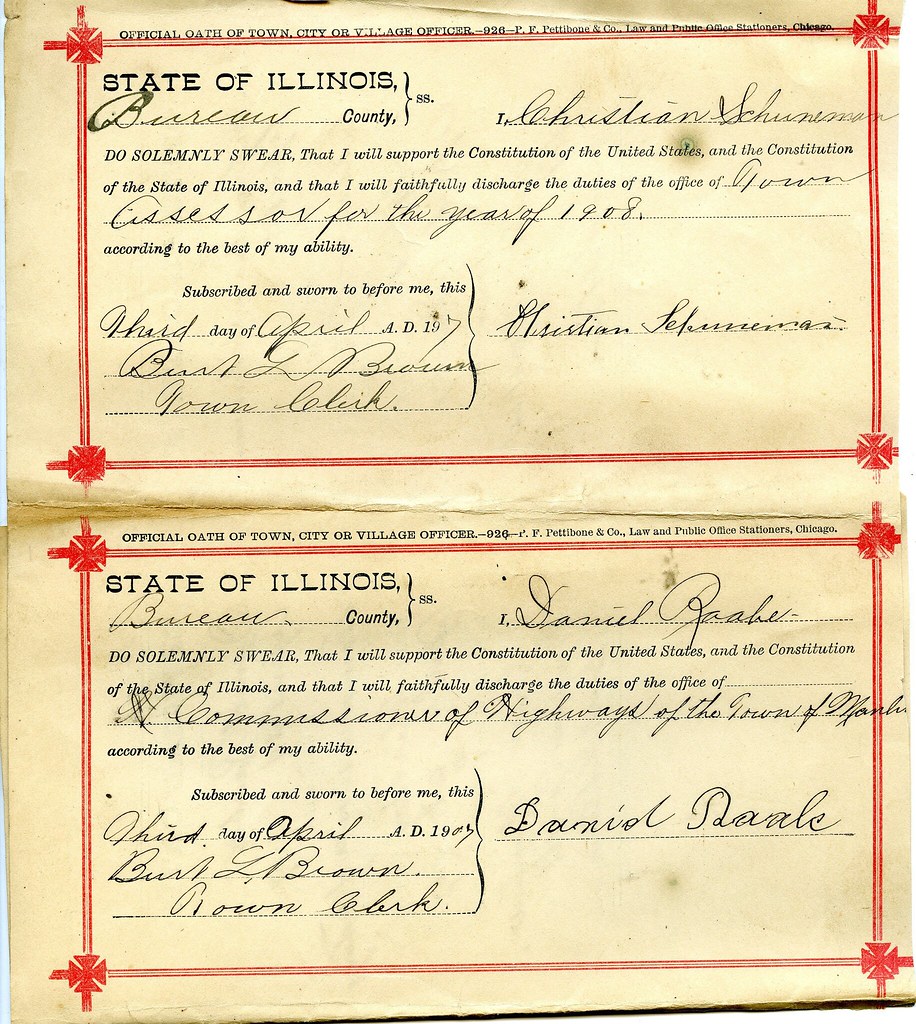 OFFICIAL OATH OF TOWN, CITY OR VILLAGE OFFICER.—926—P. F. Pettibone & Co., Law and Public Office Stationers, Chicago.
STATE OF ILLINOIS, } ss.
Bureau County, I, Christian Schuneman
DO SOLEMNLY SWEAR, That I will support the Constitution of the United States, and the Constitution
of the State of Illinois, and that I will faithfully discharge the duties of the office of Town
Assessor for the year of 1908.
according to the best of my ability.
Subscribed and sworn to before me, this
Third day of April A. D. 197 Christian Schuneman
Burt L Brown
Town Clerk.
OFFICIAL OATH OF TOWN, CITY OR VILLAGE OFFICER.—926—P. F. Pettibone & Co., Law and Public Office Stationers, Chicago.
STATE OF ILLINOIS, } ss.
Bureau. County, I, Daniel Raabe
DO SOLEMNLY SWEAR, That I will support the Constitution of the United States, and the Constitution
of the State of Illinois, and that I will faithfully discharge the duties of the office of
Commissioner of Highways of the Town of
according to the best of my ability.
Subscribed and sworn to before me, this
Third. day of April A. D. 1907 Daniel Raabe
Burt L. Brown.
Town Clerk.